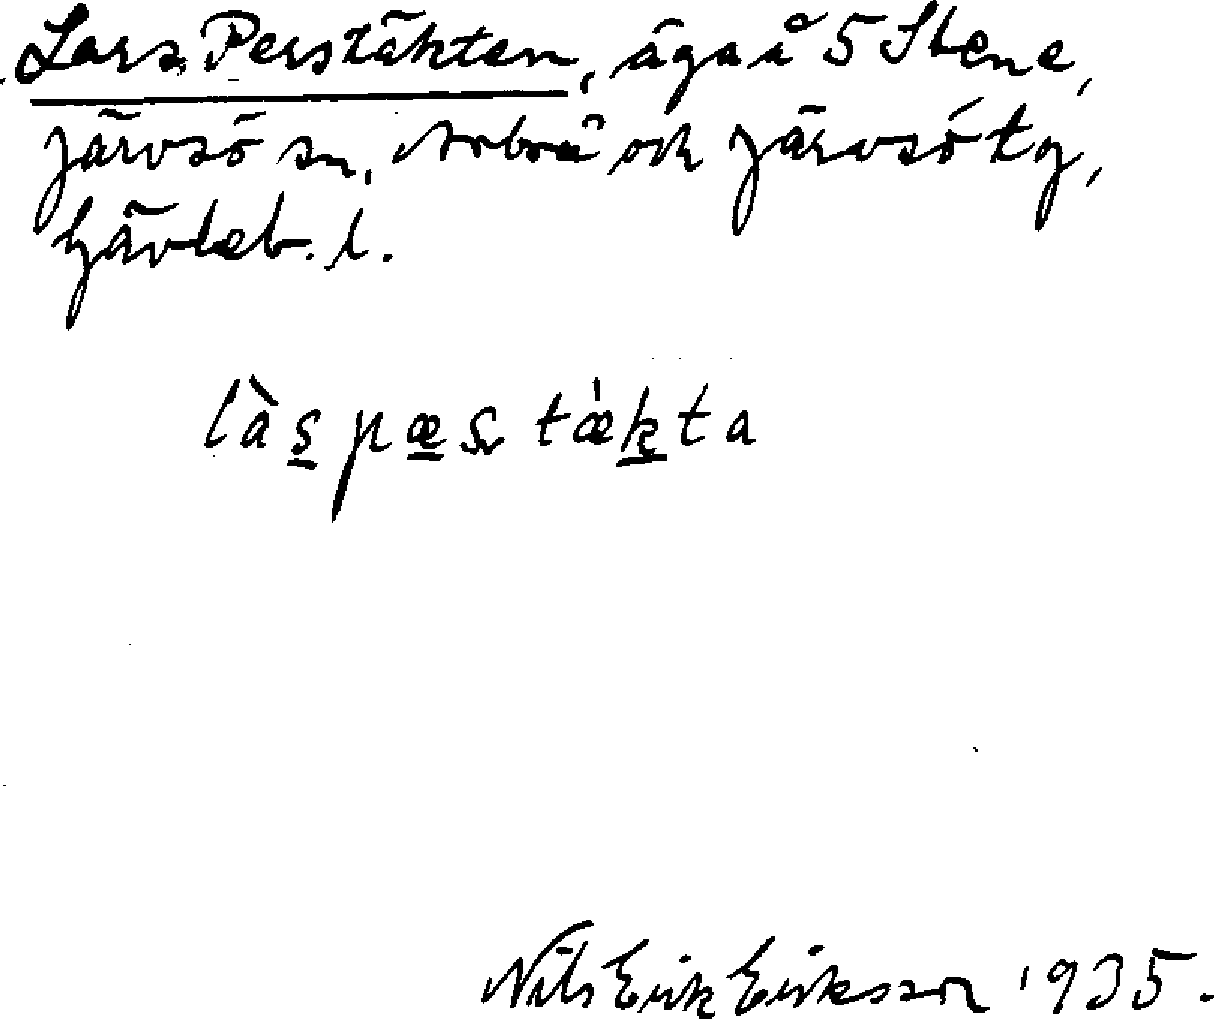 Lars Perstäkten, äga å 5 Stene,
Järvsö sn, Arbrå och Järvsö tg,
Gävleb. l.
làs̱ pæ̱s tæ̍ḵta
Nils Erik Eriksson 1935.